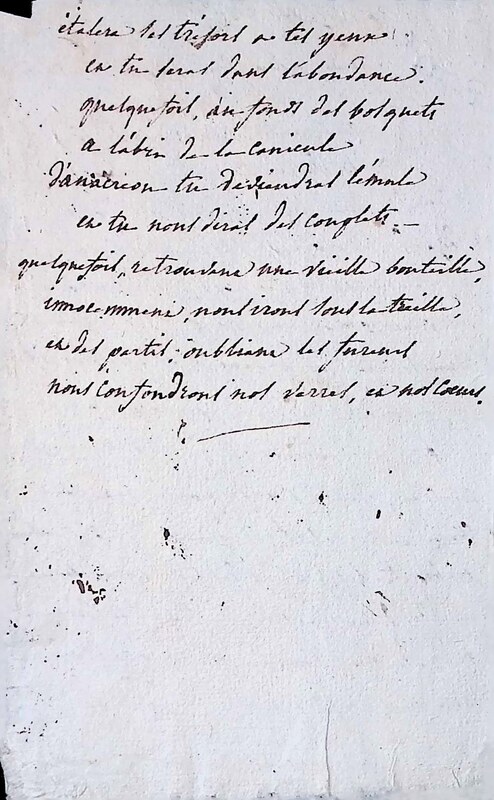 étalera ses trésors a tes yeux
et tu seras dans l'abondance.
quelquefois, au fonds des bosquets
a l'abri de la canicule
d'anacréon tu deviendras l'émule
et tu nous diras des couplets –
quelquefois, retrouvant une vieille bouteille,
innocemment, nous irons sous la treille,
et des partis, oubliant les fureurs
nous confondrons nos verres, et nos coeurs.